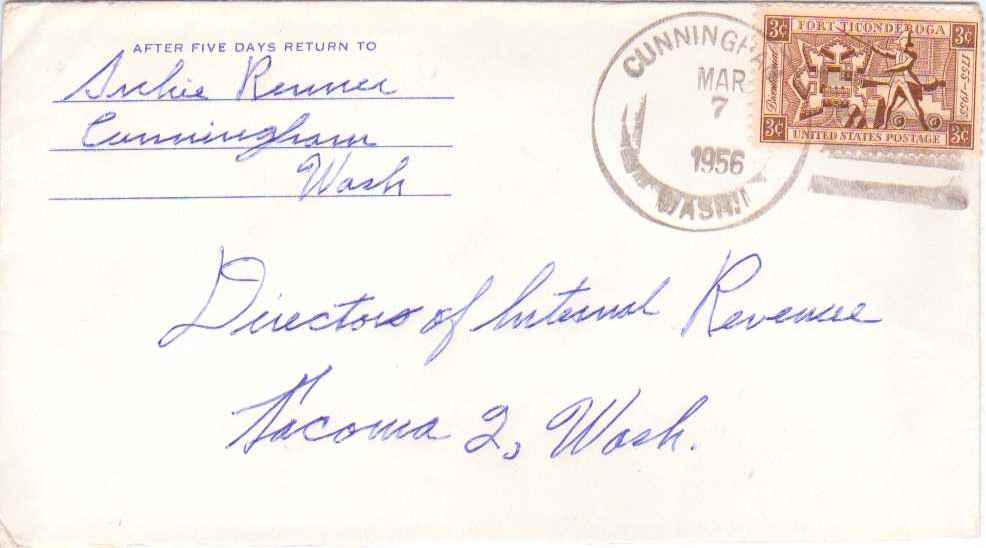 AFTER FIVE DAYS RETURN TO
Archie Renner
Cunningham
Wash
CUNNINGHA
MAR
7
1956
WASH.
3¢ FORT TICONDEROGA 3¢
Bicentennial
1755-1955
3¢ UNITED STATES POSTAGE 3¢
Director of Internal Revenue
Tacoma 2, Wash.